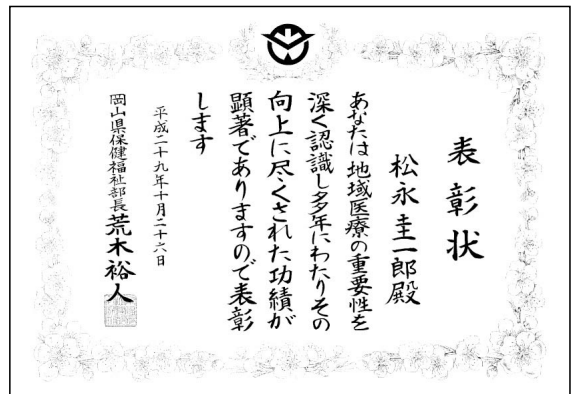 表彰状
松永圭一郎殿
あなたは地域医療の重要性を
深く認識し多年にわたりその
向上に尽くされた功績が
顕著でありますので表彰
します
平成二十九年十月二十六日
岡山県保健福祉部長 荒木裕人